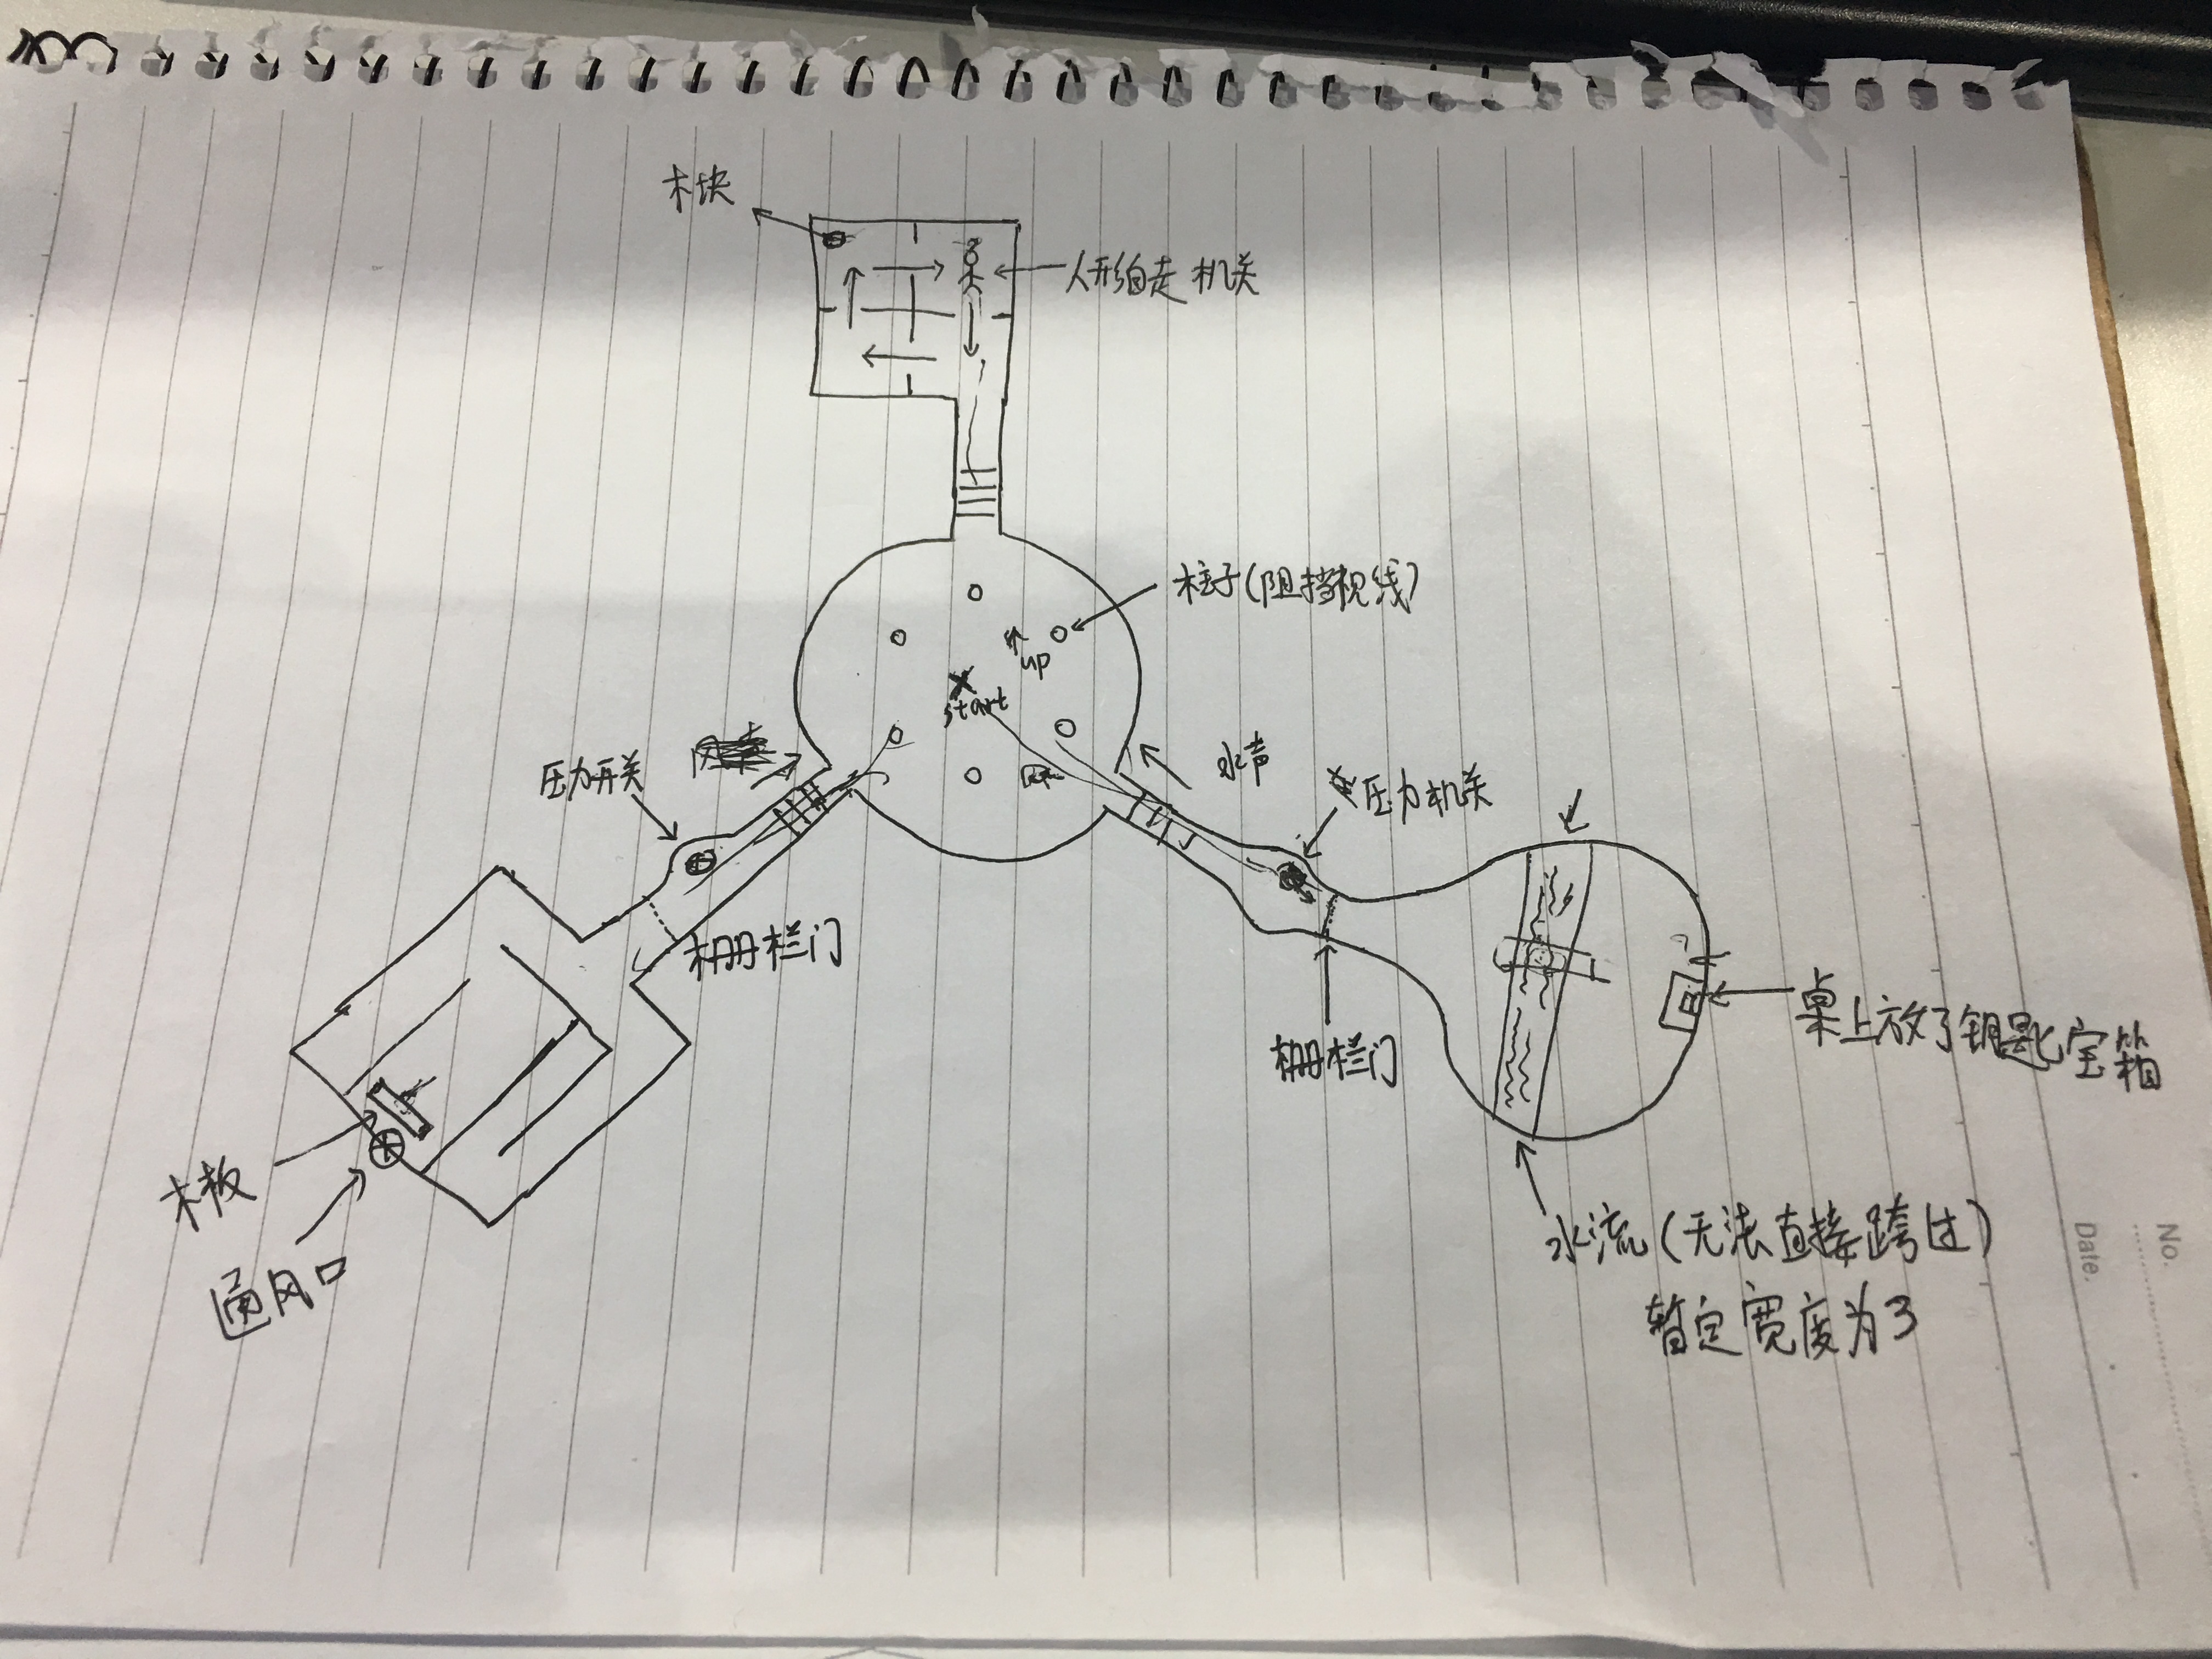 木块
人形自走机关
柱子(阻挡视线)
up
start
水声
压力开关
压力机关
栅栏门
栅栏门
桌上放了钥匙宝箱
木板
通风口
水流(无法直接跨过)
暂定宽度为3
No.
Date.